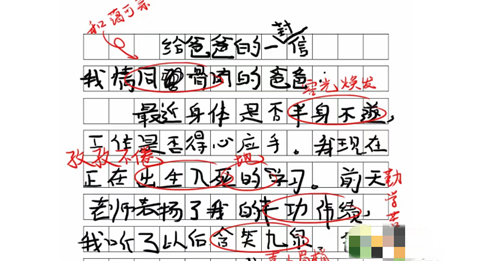 和蔼可亲
封
给爸爸的一信
我情同骨肉的爸爸：
容光焕发
最近身体是否半身不遂，
工作是否得心应手。我现在
孜孜不倦 地
正在出生入死的学习。前天
勤学苦
老师表扬了我的丰功伟绩，
我听了以后含笑九泉，